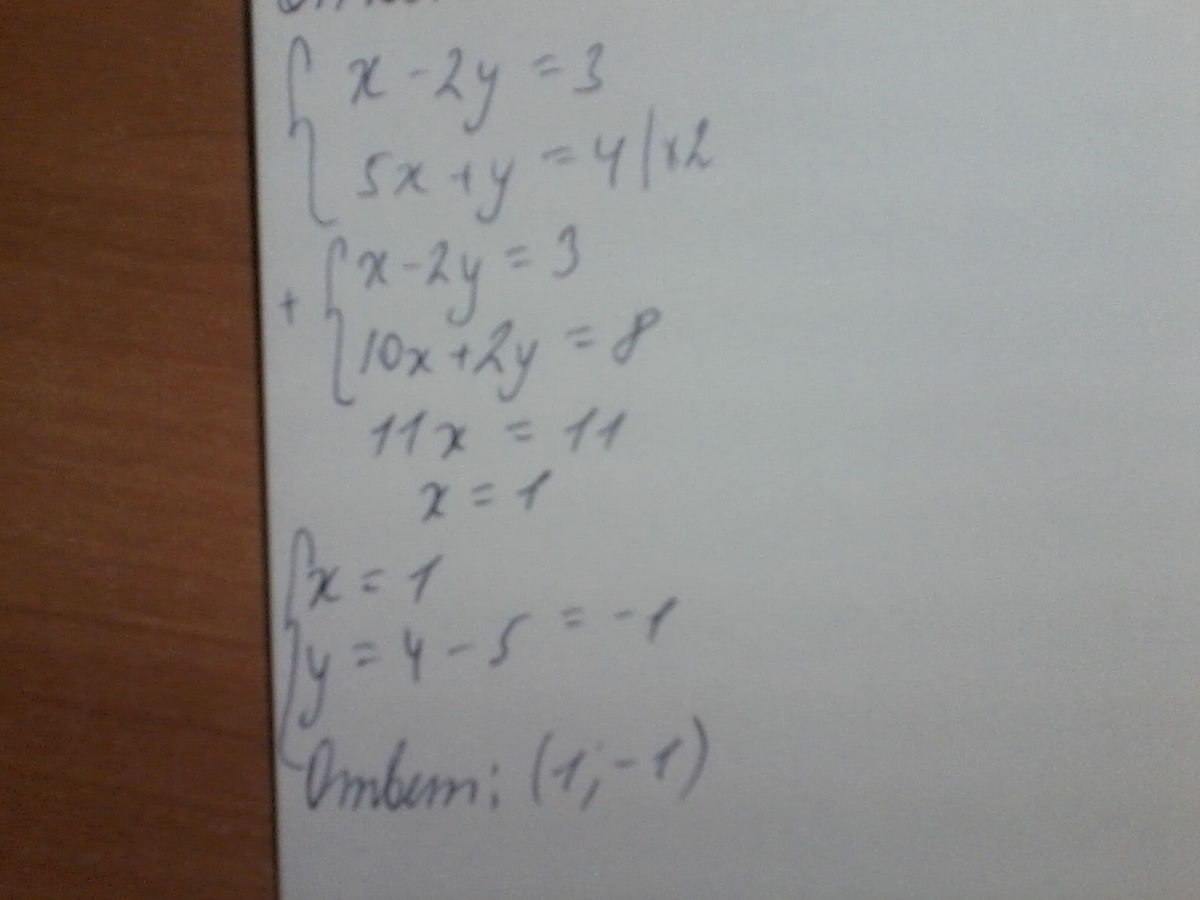 x - 2y = 3
5x + y = 4 | x2
x - 2y = 3
+
10x + 2y = 8
11x = 11
x = 1
x = 1
y = 4 - 5 = -1
Ответ: (1; -1)